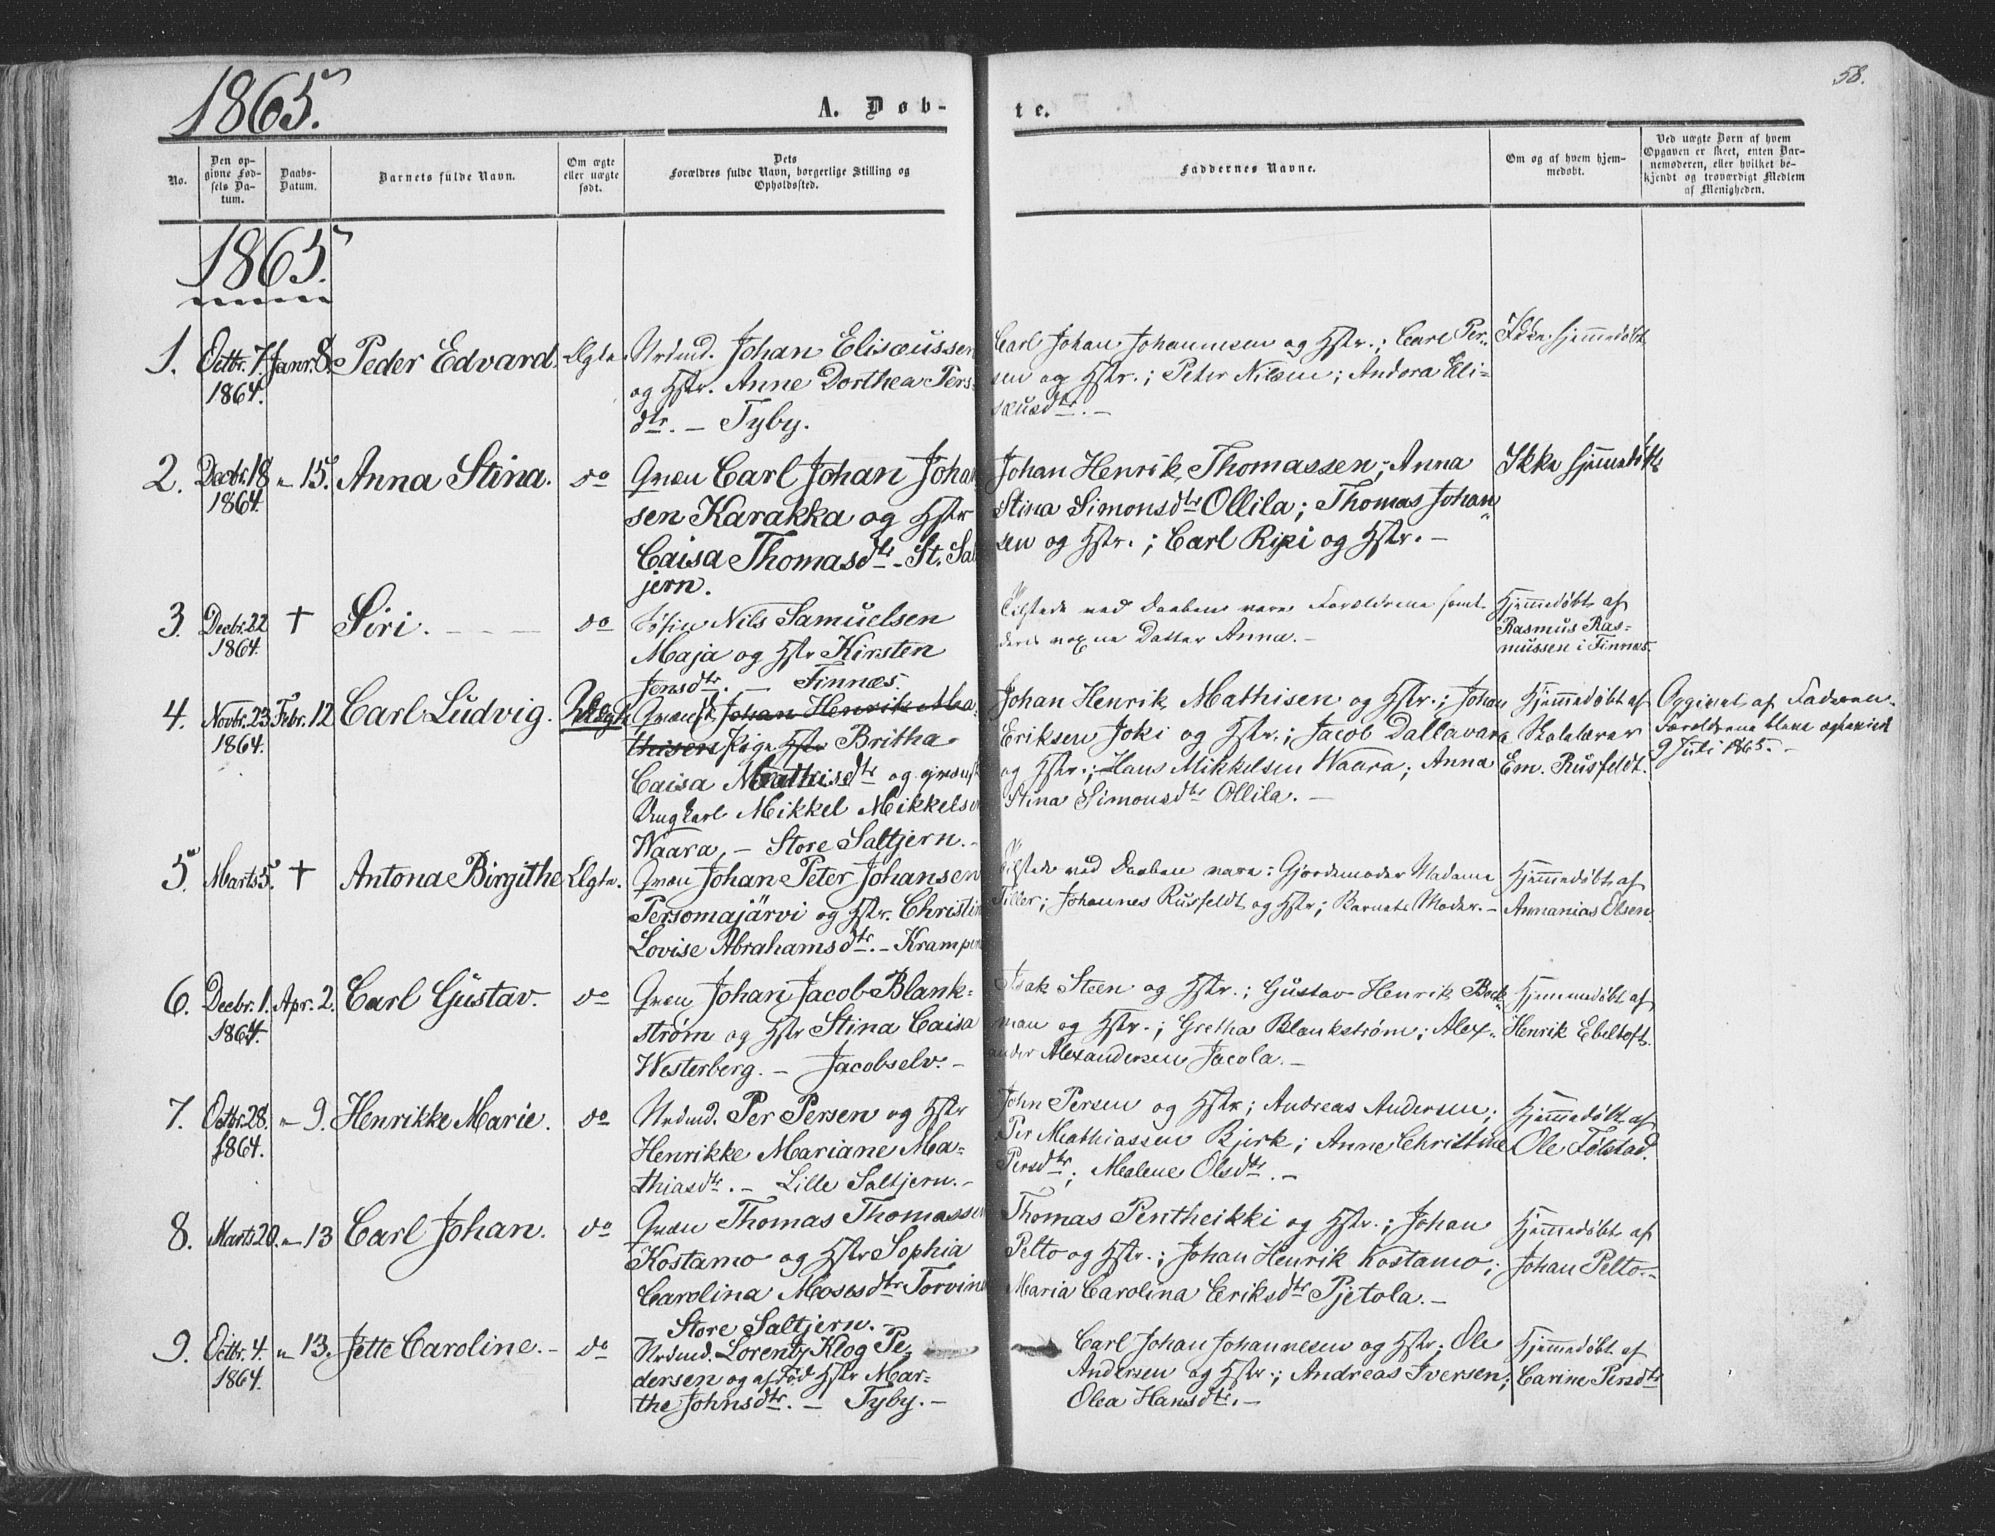 1865.
A. Døb-
te.
58.
No.
Den op-
givne Fød-
sels Da-
tum.
Daabs-
Datum.
Barnets fulde Navn.
Om ægte
eller uægte
født.
Dets
Forældres fulde Navn, borgerlige Stilling og
Opholdssted.
Faddernes Navne.
Om og af hvem hjem-
medøbt.
Ved uægte Børn af hvem
Opgaven er skeet, enten Bar-
nemoderen, eller hvilket be-
kjendt og troværdigt Medlem
af Menigheden.
1865.
1. Octbr. 7. Janr. 8. Peder Edvard. Ægte. Nrdmd. Johan Elisæussen
1864.
og Hstr. Anne Dorthea Pers-
dtr. – Tyby.
Carl Johan Johannesen og Hstr.; Carl Per-
sen og Hstr.; Peter Nilsen; Andora Eli-
sæusdtr. –
Ikke hjemmedøbt
2. Decbr. 18 „ 15. Anna Stina. do Qvæn Carl Johan Johan
1864.
sen Karakka og Hstr
Caisa Thomasdtr – St. Sal
jern.
Johan Henrik Thomassen; Anna
Stina Simonsdtr Ollila; Thomas Johan
sen og Hstr.; Carl Ripi og Hstr. –
Ikke hjemmedøbt
3. Decbr. 22 † Siri. do Nils Samuelsen
1864.
Maja og Hstr Kirsten
Jensdtr. – Finnæs.
Tilstede ved Daaben vare Forældrene samt
deres voxne Datter Anna. –
Hjemmedøbt af
Rasmus Ras-
mussen i Finnæs.
4. Novbr. 23 Febr. 12 Carl Ludvig. Uægte Qvænsk Johan Henrik Ma-
1864.
thisens Pige Hstr Britha
Caisa Mathisdtr og qvænsk
Ungkarl Mikkel Mikkelsen
Waara, – Store Saltjern. –
Johan Henrik Mathisen og Hstr.; Johan
Eriksen Joki og Hstr.; Jacob Dallavara
og Hstr.; Hans Mikkelsen Waara; Anna
Stina Simonsdtr Ollila. –
Hjemmedøbt af
Skolelærer
Em. Rusfeldt.
Opgivet af Faderen.
Forældrene bleve ægteviet
9 Juli 1865. –
5. Marts 5. † Antona Birgithe Ægte. Qvæn Johan Peter Johansen
Personajärvi og Hstr. Christin
Lovise Abrahamsdtr. – Krampen
Tilstede ved Daaben vare: Gjordemoder Madame
Tiller; Johannes Rusfeldt og Hstr; Barnets Moder. –
Hjemmedøbt af
Annanias Olsen.
6. Decbr. 1. Apr. 2. Carl Gustav. do Qvæn Johan Jacob Blank-
1864.
strøm og Hstr Stina Caisa
Westerberg. – Jacobselv. –
Isak Steen og Hstr.; Gustav Henrik Bock
man og Hstr.; Gretha Blankstrøm; Alex-
ander Alexandersen Jacola. –
Hjemmedøbt af
Henrik Ebeltoft.
7. Octbr. 28. „ 9. Henrikke Marie. do Nrdmd. Per Persen og Hstr
1864.
Henrikke Mariane Ma-
thiasdtr. – Lille Saltjern. –
John Persen og Hstr; Andreas Andersen;
Per Mathiassen Bjerk; Anne Christine
Persdtr; Malene Olsdtr. –
Hjemmedøbt af
Ole Følstad.
8. Marts 20. „ 13 Carl Johan. do Qvæn Thomas Thomassen
Kostamo og Hstr Sophia
Carolina Mosesdtr Torvin
Store Saltjern. –
Thomas Pentheikki og Hstr.; Johan
Pelto og Hstr.; Johan Henrik Kostamo;
Maria Carolina Eriksdtr Pjetola. –
Hjemmedøbt af
Johan Pelto. –
9. Octbr. 4. „ 13. Jette Caroline. – do Nrdmd. Lorentz Klog Pe-
1864.
dersen og afFød Hstr Mar-
the Johnsdtr. – Tyby. –
Carl Johan Johannesen og Hstr; Ole
Andersen og Hstr.; Andreas Iversen;
Olea Hansdtr. –
Hjemmedøbt af
Carine Persdtr